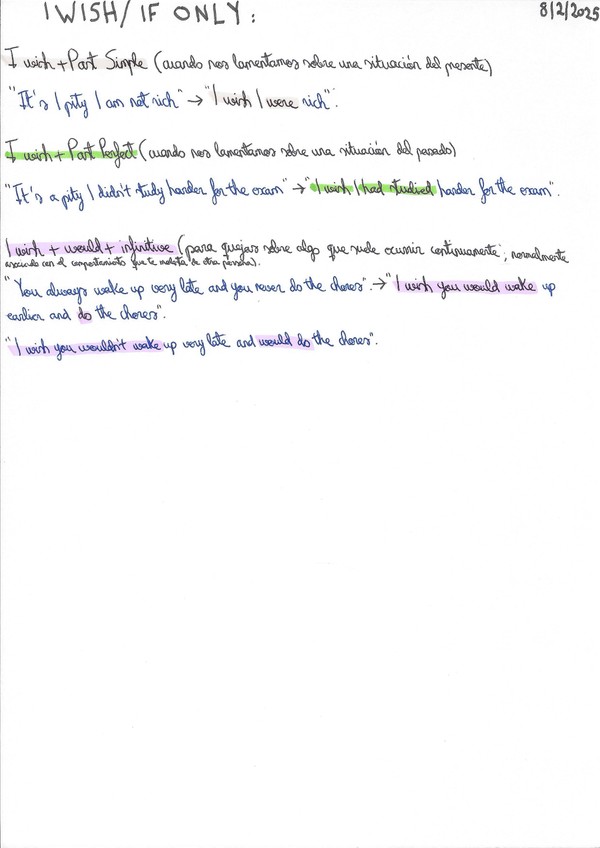 I WISH/ IF ONLY:
8/2/2025
I wish + Past Simple (cuando nos lamentamos sobre una situación del presente)
"It's I pity I am not rich" → "I wish I were rich".
I wish + Past Perfect (cuando nos lamentamos sobre una situación del pasado)
"It's a pity I didn't study harder for the exam" → "I wish I had studied harder for the exam".
I wish + would + infinitive (para quejas sobre algo que suele ocurrir continuamente; normalmente
asociado con el comportamiento que te molesta de otra persona).
"You always wake up very late and you never do the chores". → "I wish you would wake up
earlier and do the chores".
"I wish you wouldn't wake up very late and would do the chores".